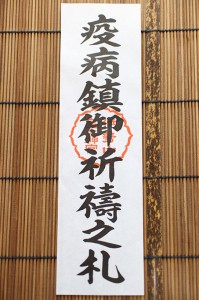 疫病鎮御祈禱之札